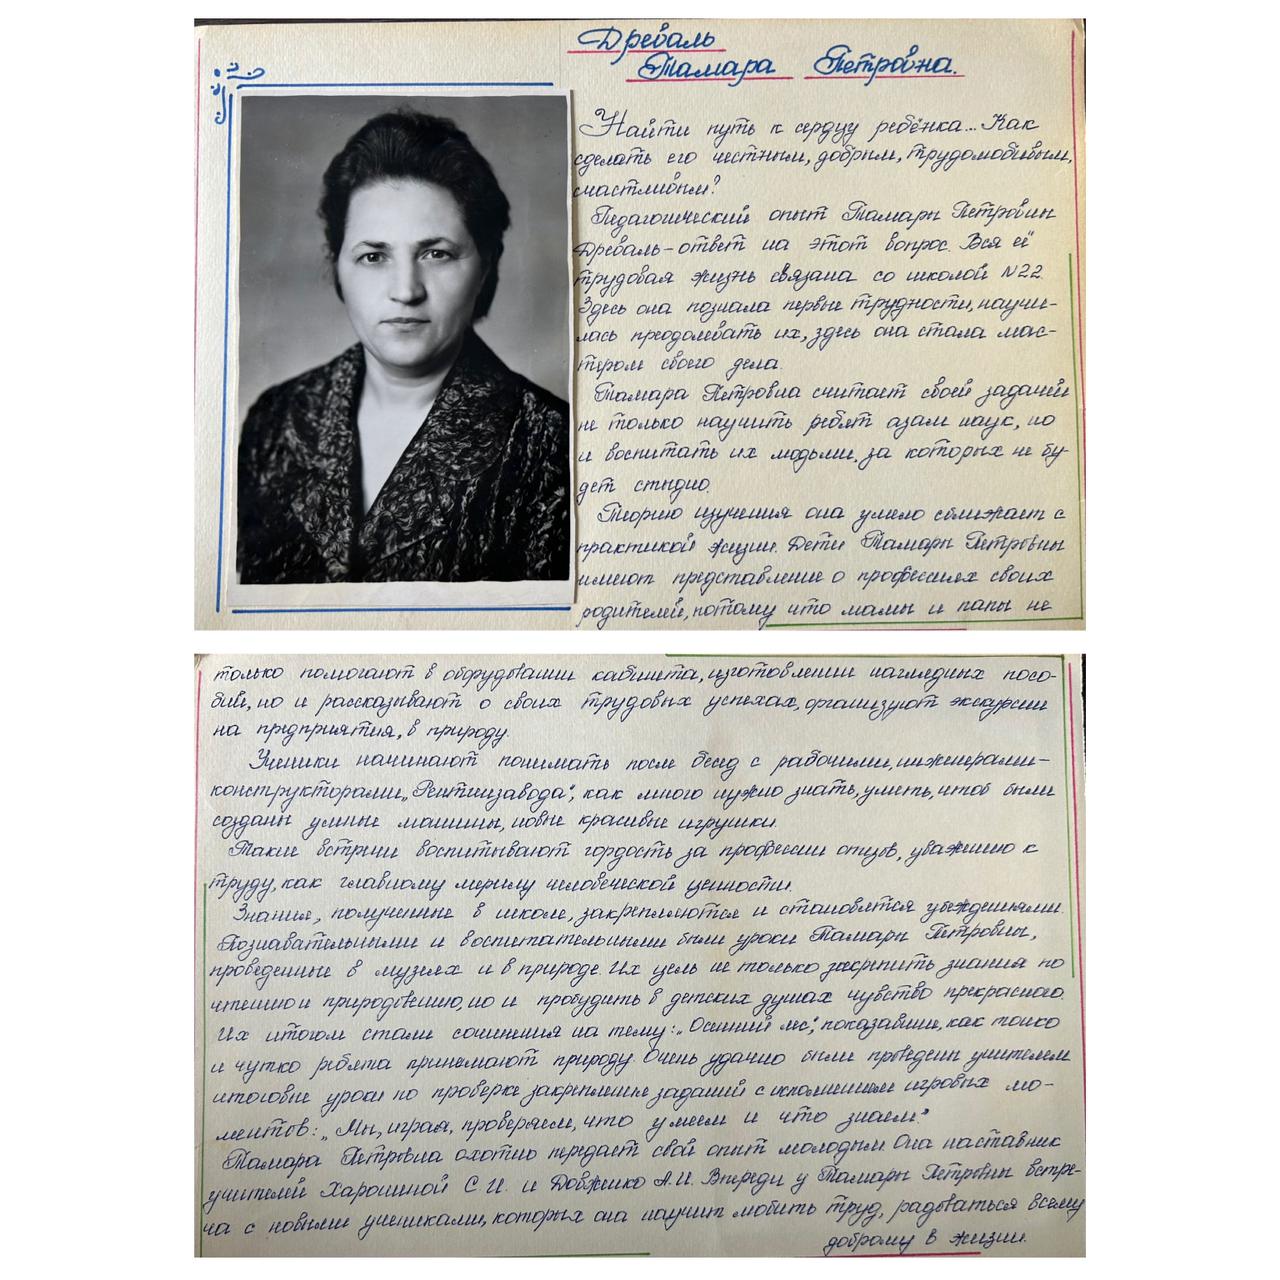 Древаль
Тамара Петровна.
Найти путь к сердцу ребёнка... Как
сделать его честным, добрым, трудолюбивым,
счастливым?
Педагогический опыт Тамары Петровны
Древаль – ответ на этот вопрос. Вся её
трудовая жизнь связана со школой №22.
Здесь она познала первые трудности, научи-
лась преодолевать их, здесь она стала мас-
тером своего дела.
Тамара Петровна считает своей задачей
не только научить ребят азам наук, но
и воспитать их людьми, за которых не бу-
дет стыдно.
Теорию изучения она умело сближает с
практикой жизни. Дети Тамары Петровны
имеют представление о профессиях своих
родителей, потому что мамы и папы не
только помогают в оборудовании кабинета, изготовлении наглядных посо-
бий, но и рассказывают о своих трудовых успехах, организуют экскурсии
на предприятия, в природу.
Ученики начинают понимать после бесед с рабочими, инженерами-
конструкторами „Рентгензавода", как много нужно знать, уметь, чтоб были
созданы умные машины, новые красивые игрушки.
Такие встречи воспитывают гордость за профессии отцов, уважению к
труду, как главному мерилу человеческой ценности.
Знания, полученные в школе, закрепляются и становятся убеждениями.
Познавательными и воспитательными были уроки Тамары Петровны,
проведенные в музеях и в природе. Их цель не только закрепить знания по
чтению и природоведению, но и пробудить в детских душах чувство прекрасного.
Их итогом стали сочинения на тему: „Осенний лес", показавшие, как тонко
и чутко ребята принемают природу. Очень удачно были проведены учителем
итоговые уроки по проверке закрепления заданий с исполнением игровых мо-
ментов: „Мы, играя, проверяем, что умеем и что знаем."
Тамара Петровна охотно передает свой опыт молодым. Она наставник
учителей Харошиной С.И. и Довженко А.И. Впереди у Тамары Петровны встре-
ча с новыми учениками, которых она научит любить труд, радоваться всему
доброму в жизни.